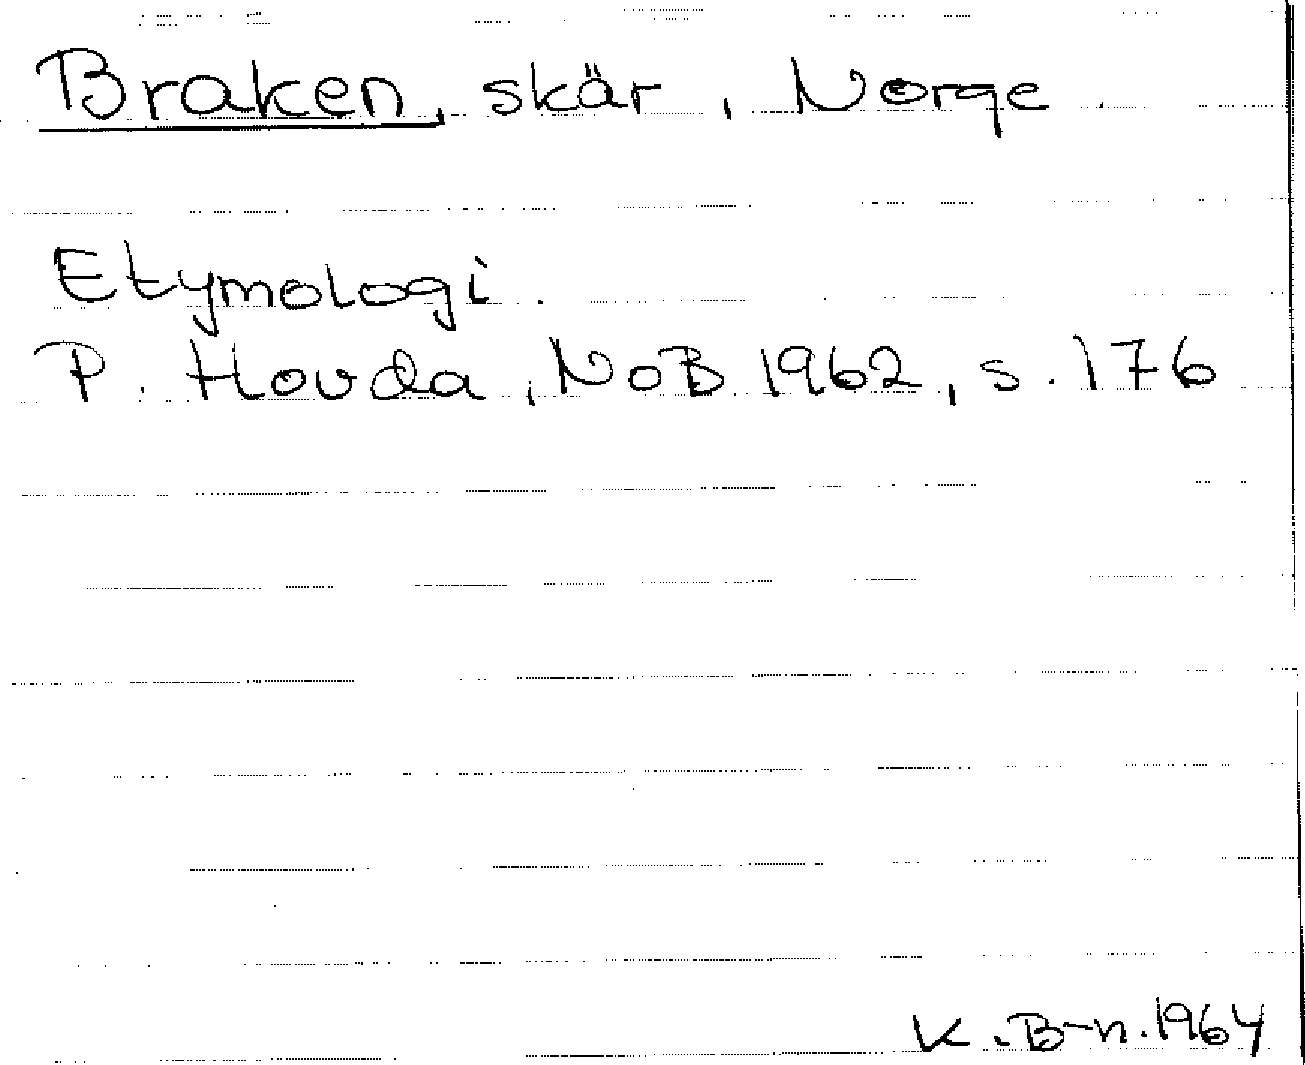 Braken, skär, Norge
Etymologi.
P. Hovda, NoB 1962, s. 176
K. B-n. 1964